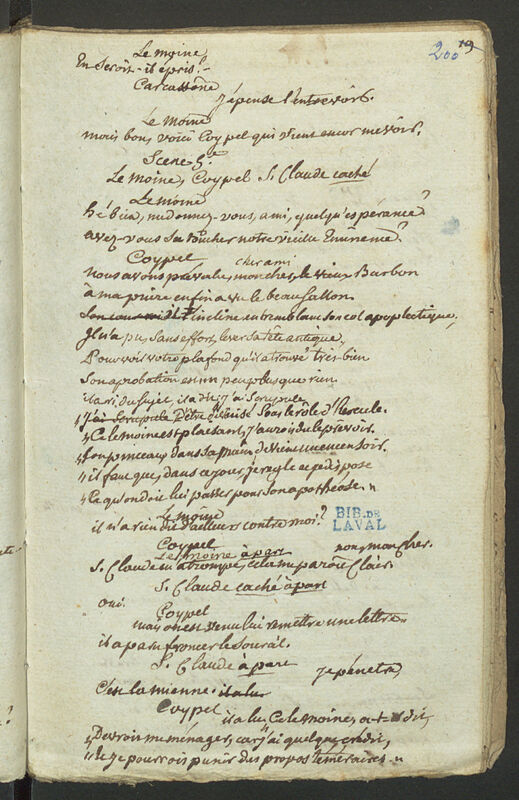 200 19
Le moine
En seroit-il épris?
Carcassone
Je pense l'entrevoir.
Le moine
mais bon, voici Coypel qui vient encor me voir.
Scene 5.e
Le moine, Coypel S. Claude caché
Le moine
hé bien, me donnez-vous, ami, quelqu'espérance?
avez-vous su toucher notre vieille Eminence?
Coypel
cher ami
nous avons prévalu, mon cher, le vieux Barbon
à ma priere enfin a vu le beau Sallon
incline en tremblant son col apoplectique,
Il n'a pu, sans effort, lever sa tête antique,
Pour voir votre plafond qu'il a trouvé très bien
Son aprobation est un peu plus que rien
il a ri du sujet, il a dit, j'ai scrupule
D'être déguisé sous le rôle d'hercule.
"Ce le moine est plaisant, j'aurois du le prévoir.
"Son pinceau dans sa main devient un encensoir.
"il faut que, dans ce jour, je regle ce dépose
"Ce qu'on doit lui passer pour son apothéose. "
Le moine
il n'a rien dit d'ailleurs contre moi?
BIB. DE
LAVAL
Coypel
non, mon cher.
Le moine à part
S. Claude m'a trompé, cela me paroit clair.
S. Claude caché à part
oui.
Coypel
mais on est venu lui remettre une lettre
il a paru froncer le sourcil.
S. Claude à part
Je pénetre,
C'est la mienne. il a lu
Coypel
il a lu, Ce le moine, a-t-il dit,
"Devroit me ménager, car j'ai quelque crédit,
"Et je pourrois punir des propos téméraires "